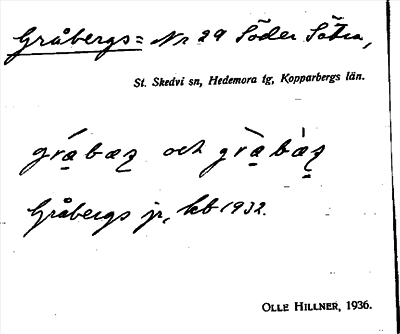 Gråbergs = Nr 29 Söder Sätra,
St. Skedvi sn, Hedemora tg, Kopparbergs län.
och
Gråbergs jr, kb 1932.
OLLE HILLNER, 1936.